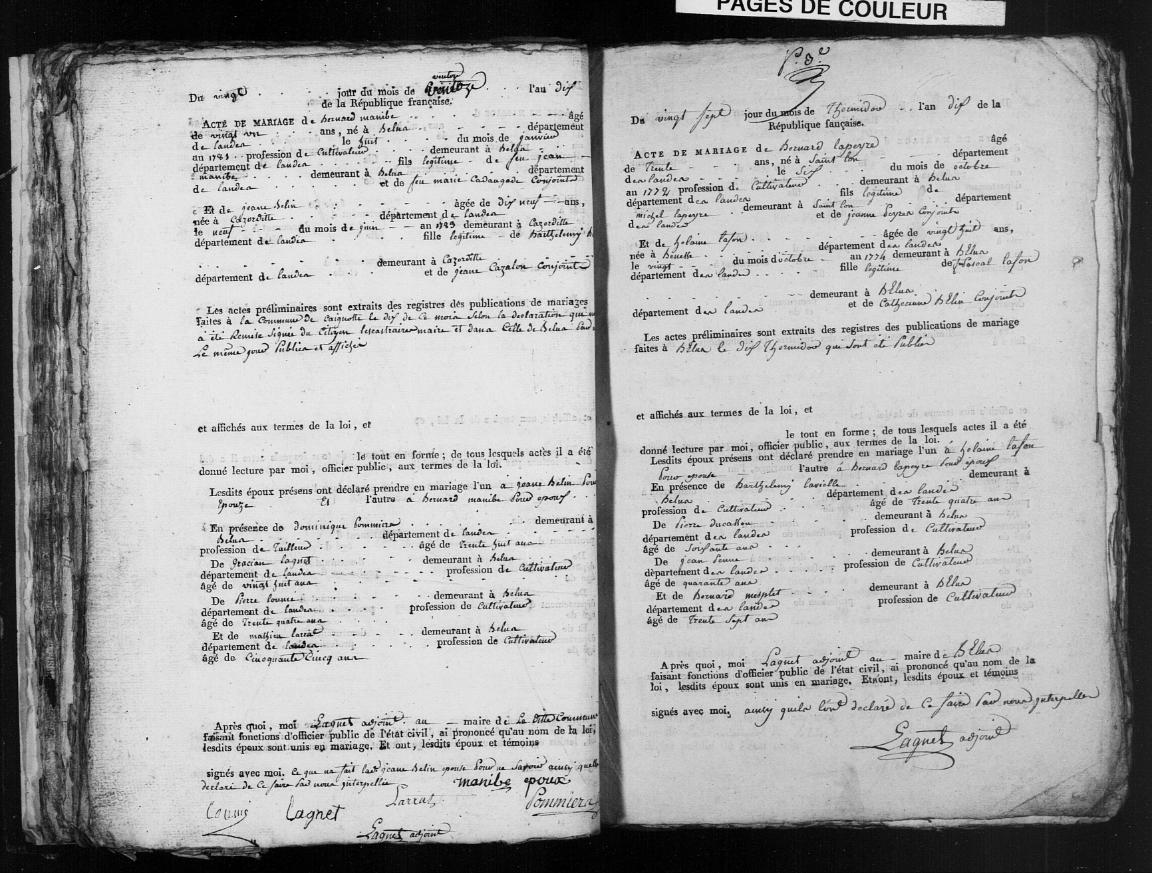 PAGES DE COULEUR
Du vingt jour du mois de ventoze ventoze l'an dix
de la République française.
ACTE DE MARIAGE de Bernard manibe âgé
de vingt un ans, né à Belus département
de landes le huit du mois de janvier
an 1783 profession de Cultivateur demeurant à Belus
département de landes fils légitime de feu jean
manibe demeurant à Belus département
de landes et de feu marie Conjoints
Et de jeane Belin âgée de dix neuf ans,
née à Cazorditte département de landes
le neuf du mois de juin an 1783 demeurant à Cazorditte
département de landes fille légitime de Barthelemy
demeurant à Cazorditte
département de landes et de jeane Cazalon Conjoints
Les actes préliminaires sont extraits des registres des publications de mariages
faites à la Commune de Caignotte le dix de ce mois selon la declaration que
a été Remise signée du Citoyen maire et dans Celle de Belus
Le même jour Publiés et affichés
et affichés aux termes de la loi, et
le tout en forme; de tous lesquels actes il a été
donné lecture par moi, officier public, aux termes de la loi.
Lesdits époux présens ont déclaré prendre en mariage l'un a jeane Belin Pour
Epouze Et l'autre à Bernard manibe Pour epoux
En présence de dominique Pommiers demeurant à
Belus département de landes
profession de Tailleur âgé de trente huit ans
De gracian Lagnet demeurant à Belus
département de landes profession de Cultivateur
âgé de vingt huit ans
De Pierre demeurant à Belus
département de landes profession de Cultivateur
âgé de Trente quatre ans
Et de mathieu larrat demeurant à Belus
département de landes profession de Cultivateur
âgé de Cinquante Cincq ans
Après quoi, moi Lagnet adjoint au maire de la ditte Commune
faisant fonctions d'officier public de l'état civil, ai prononcé qu'au nom de la loi,
lesdits époux sont unis en mariage. Et ont, lesdits époux et témoins
signés avec moi. Ce que na fait lad. jeane Belin epouse Pour ne savoir ainsy quelle
declaré de Ce faire Par nous interpellée manibe epoux
Larrat
Lagnet Pommiers
Lagnet adjoint
Du vingt sept jour du mois de Thermidor l'an dix de la
République française.
ACTE DE MARIAGE de Bernard lapeyre âgé
de Trente ans, né à Saint lon département
des landes le Six du mois de octobre
an 1772 profession de Cultivateur demeurant à Belus
département des landes fils légitime de
michel lapeyre demeurant à Saint lon département
des landes et de jeanne Peyres Conjoints
Et de helaine lafon âgée de vingt huit ans,
née à département des landes
le vingt du mois d'octobre an 1774 demeurant à BElus
département des landes fille légitime de Pascal lafon
demeurant à BElus
département des landes et de Catherinne BElin Conjoints
Les actes préliminaires sont extraits des registres des publications de mariage
faites à BElus le dix Thermidor qui sont été Publiés
et affichés aux termes de la loi, et
le tout en forme; de tous lesquels actes il a été
donné lecture par moi, officier public, aux termes de la loi.
Lesdits époux présens ont déclaré prendre en mariage l'un à helaine lafon
Pour epouse l'autre à Bernard lapeyre Pour époux
En présence de Barthelemy lavielle demeurant à
Belus département des landes
profession de Cultivateur âgé de Trente quatre ans
De Pierre ducasson demeurant à Belus
département des landes profession de Cultivateur
âgé de Soixante ans
De jean demeurant à Belus
département des landes profession de Cultivateur
âgé de quarante ans
Et de Bernard mesplet demeurant à BElus
département des landes profession de Cultivateur
âgé de Trente Sept ans
Après quoi, moi Lagnet adjoint au maire de BElus
faisant fonctions d'officier public de l'état civil, ai prononcé qu'au nom de la
loi, lesdits époux sont unis en mariage. Et n'ont, lesdits époux et témoins
signés avec moi, ainsy quils l'ont declaré de Ce faire Par nous interpellés
Lagnet adjoint